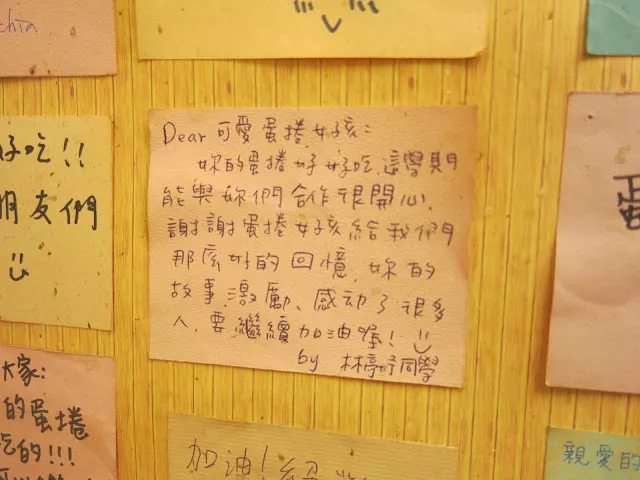 chia
好吃!!
朋友們
Dear 可愛蛋捲女孩:
妳的蛋捲好好吃,這學期
能與妳們合作很開心,
謝謝蛋捲女孩給我們
那麼好的回憶,妳的
故事激勵、感动了很多
人,要繼續加油喔!
by 林婷妤同學
大家:
的蛋捲
吃的!!!
加油!
親愛的